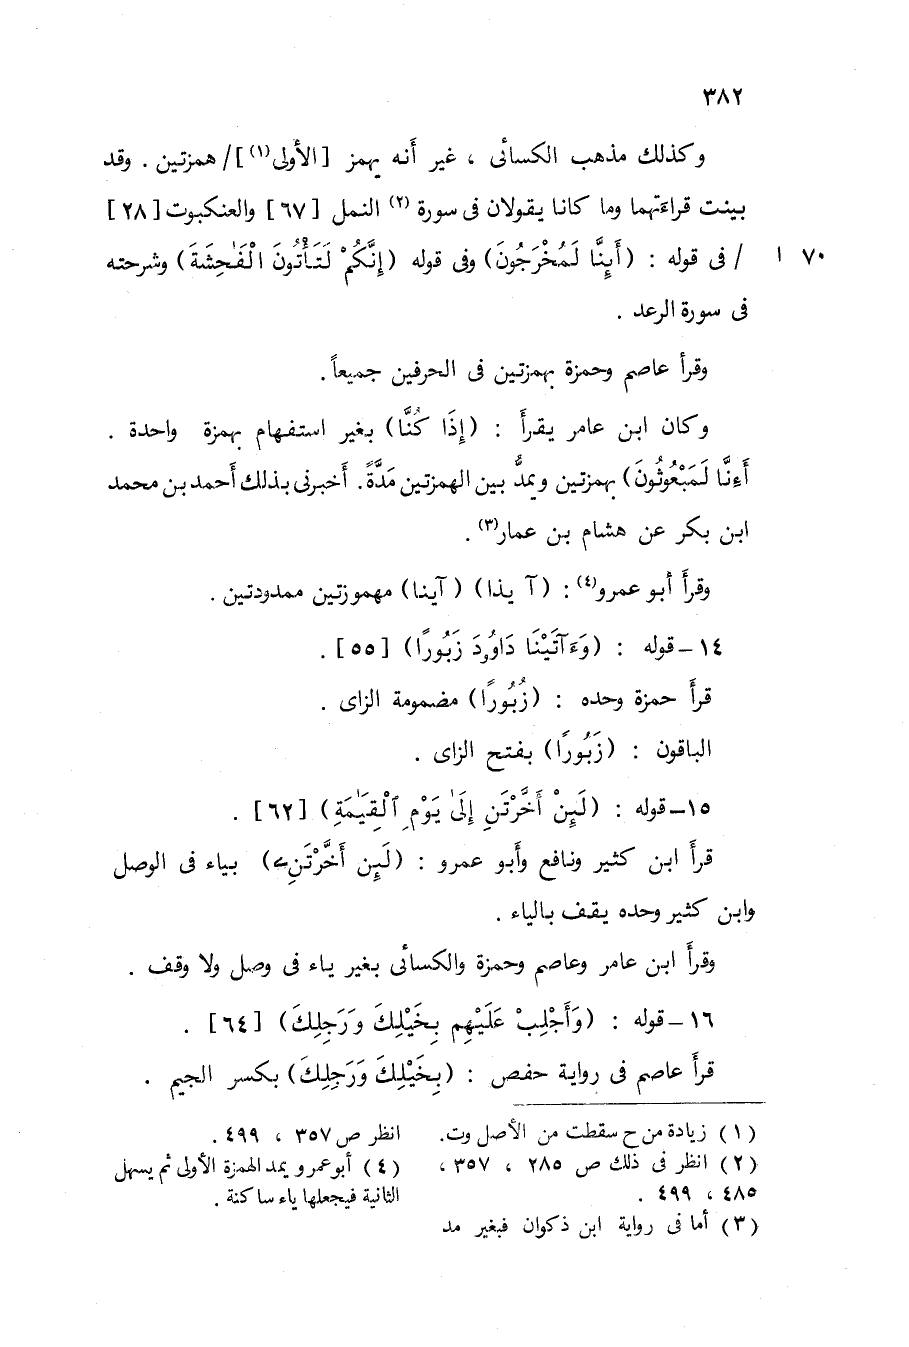 ٣٨٢
وكذلك مذهب الكسائى ، غير أنه يهمز [ الأولى(١) ] / همزتين . وقد
بينت قراءتهما وما كانا يقولان فى سورة (٢) النمل [ ٦٧ ] والعنكبوت [ ٢٨ ]
٧٠ ا / فى قوله : ( أَيِنَّا لَمُخْرَجُونَ ) وفى قوله ( إِنَّكُمْ لَتَأْتُونَ الْفَٰحِشَةَ ) وشرحته
فى سورة الرعد .
وقرأ عاصم وحمزة بهمزتين فى الحرفين جميعاً .
وكان ابن عامر يقرأ : ( إِذَا كُنَّا ) بغير استفهام بهمزة واحدة .
أَءِنَّا لَمَبْعُوثُونَ ) بهمزتين ويمدُّ بين الهمزتين مَدَّةً . أخبرنى بذلك أحمد بن محمد
ابن بكر عن هشام بن عمار(٣) .
وقرأ أبو عمرو(٤) : ( آ يذا ) ( آينا ) مهموزتين ممدودتين .
١٤ – قوله : ( وَءَاتَيْنَا دَاوُۥدَ زَبُورًا ) [ ٥٥ ] .
قرأ حمزة وحده : ( زُبُورًا ) مضمومة الزاى .
الباقون : ( زَبُورًا ) بفتح الزاى .
١٥ – قوله : ( لَئِنْ أَخَّرْتَنِ إِلَىٰ يَوْمِ ٱلْقِيَٰمَةِ ) [ ٦٢ ] .
قرأ ابن كثير ونافع وأبو عمرو : ( لَئِن أَخَّرْتَنِۦ ) بياء فى الوصل
وابن كثير وحده يقف بالياء .
وقرأ ابن عامر وعاصم وحمزة والكسائى بغير ياء فى وصل ولا وقف .
١٦ – قوله : ( وَأَجْلِبْ عَلَيْهِم بِخَيْلِكَ وَرَجِلِكَ ) [ ٦٤ ] .
قرأ عاصم فى رواية حفص : ( بِخَيْلِكَ وَرَجِلِكَ ) بكسر الجيم .
( ١ ) زيادة من ح سقطت من الأصل وت.
( ٢ ) انظر فى ذلك ص ٢٨٥ ، ٣٥٧ ،
٤٨٥ ، ٤٩٩ .
( ٣ ) أما فى رواية ابن ذكوان فبغير مد
انظر ص ٣٥٧ ، ٤٩٩ .
( ٤ ) أبو عمرو يمد الهمزة الأولى ثم يسهل
الثانية فيجعلها ياء ساكنة .